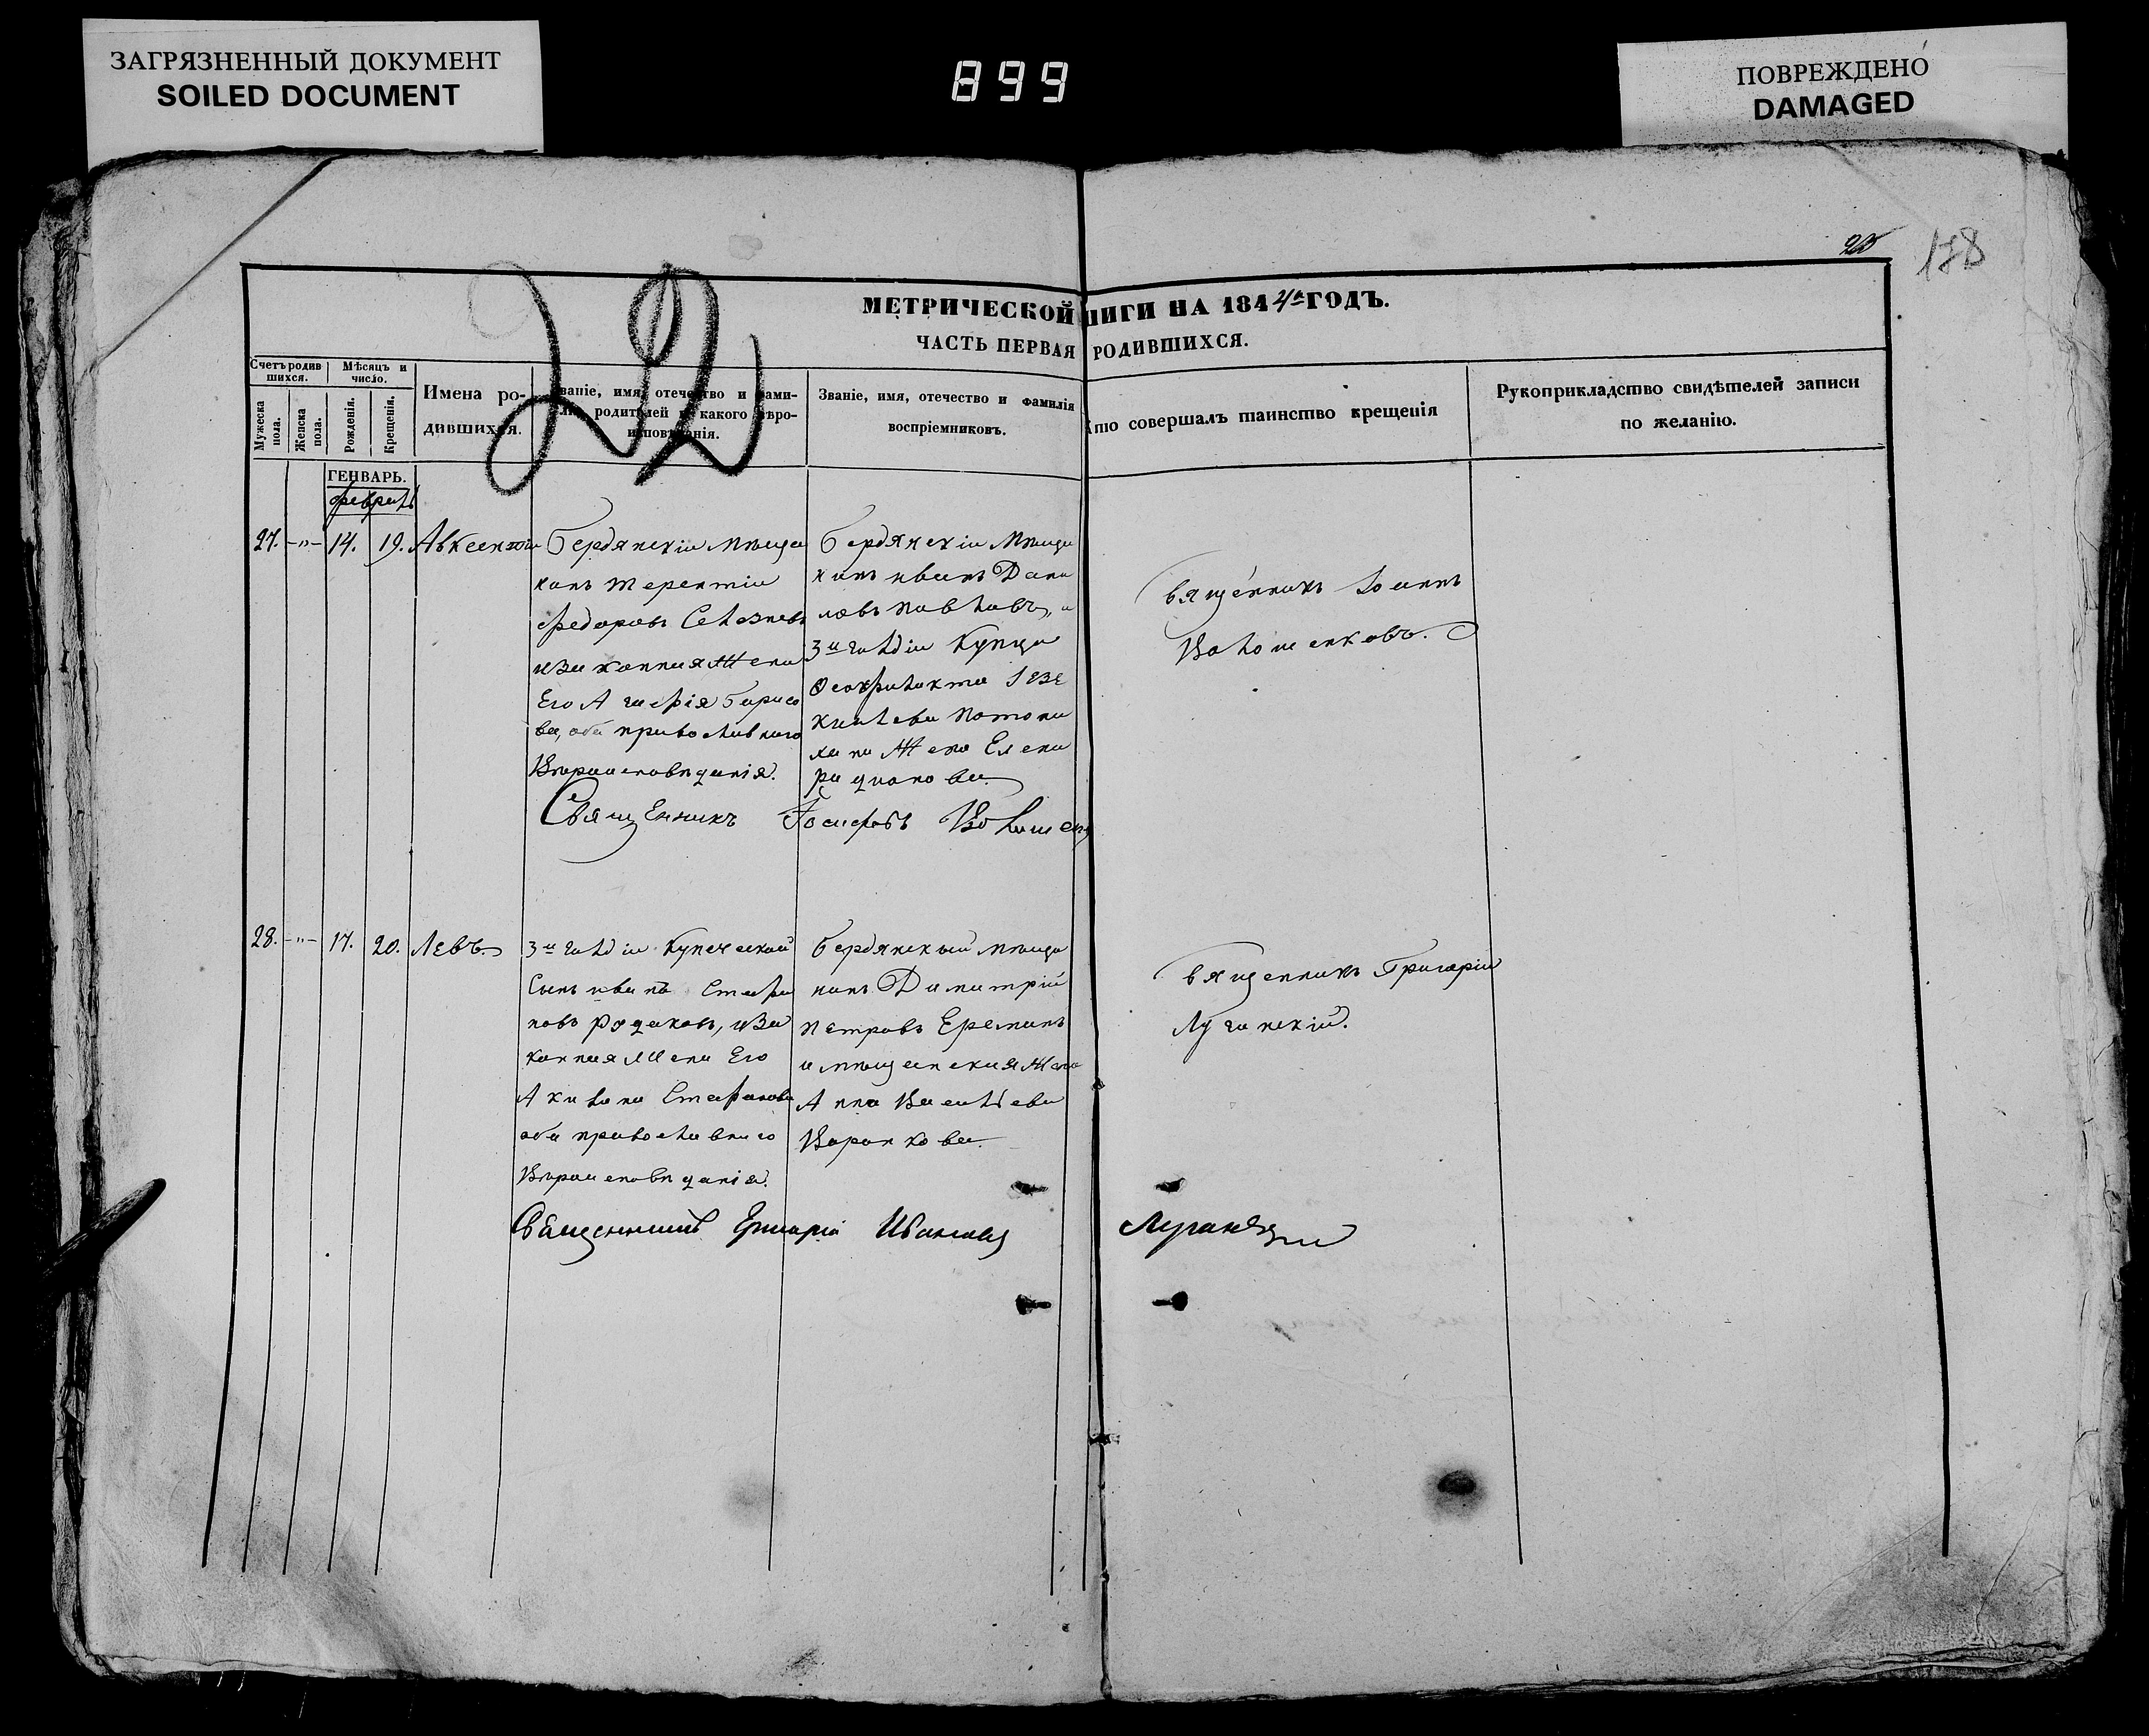 ЗАГРЯЗНЕННЫЙ ДОКУМЕНТ
SOILED DOCUMENT
899
ПОВРЕЖДЕНО
DAMAGED
138
МЕТРИЧЕСКОЙ НИГИ НА 1844 ГОДЪ.
ЧАСТЬ ПЕРВАЯ РОДИВШИХСЯ.
Счетъ родив
шихся.
Мѣсяцъ и
число.
Мужеска
пола.
Женска
пола.
Рожденія.
Крещенія.
Имена ро-
дившихся.
Званіе, имя, отечество и фами-
лія родителей и какого вѣро-
исповѣданія.
Званіе, имя, отечество и фамилія
воспріемниковъ.
Кто совершалъ таинство крещенія
Рукоприкладство свидѣтелей записи
по желанію.
ГЕНВАРЬ.
февраль
27. -"- 14. 19. Авксентій
Бердянскій мѣща
нинъ Терентій
Федоровъ Селезневъ
изаконная жена
Его Агафія Борисо
ва, оба православнаго
Вѣроисповѣданія.
Бердянскій мѣща
нинъ иванъ Дани
ловъ Павловъ, и
3й гильдіи купца
Феофилакта Іезе
кіилева
жена Елена
Священникъ Іоаннъ
Волошенковъ.
Священникъ Іосифовъ Волошенк
28. -"- 17. 20. Левъ.
3й гильдіи купеческой
Сынъ иванъ Стефа
новъ Рудаковъ, иза
конная жена Его
Акилина Стефанова
оба православнаго
Вѣроисповѣданія.
Бердянскый мѣща
нинъ Димитрій
Петровъ Ереминъ
и мѣщанская жена
Анна Васильева
Воронкова.
Священникъ Григорій
Луганскій.
Священникъ Григорій Ивановъ Луганскій